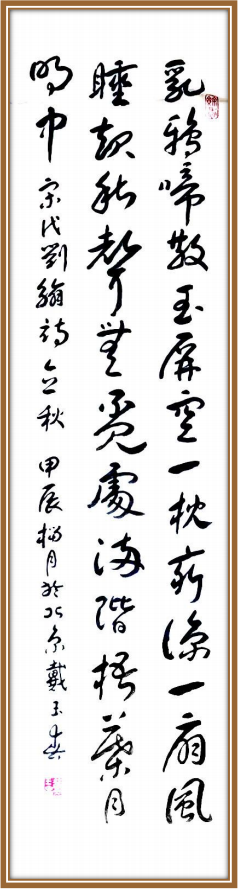 乳鴉啼散玉屏空一枕新涼一扇風
睡起秋聲無覓處滿階梧葉月
明中 宋代劉翰詩立秋 甲辰桐月於北京戴玉春